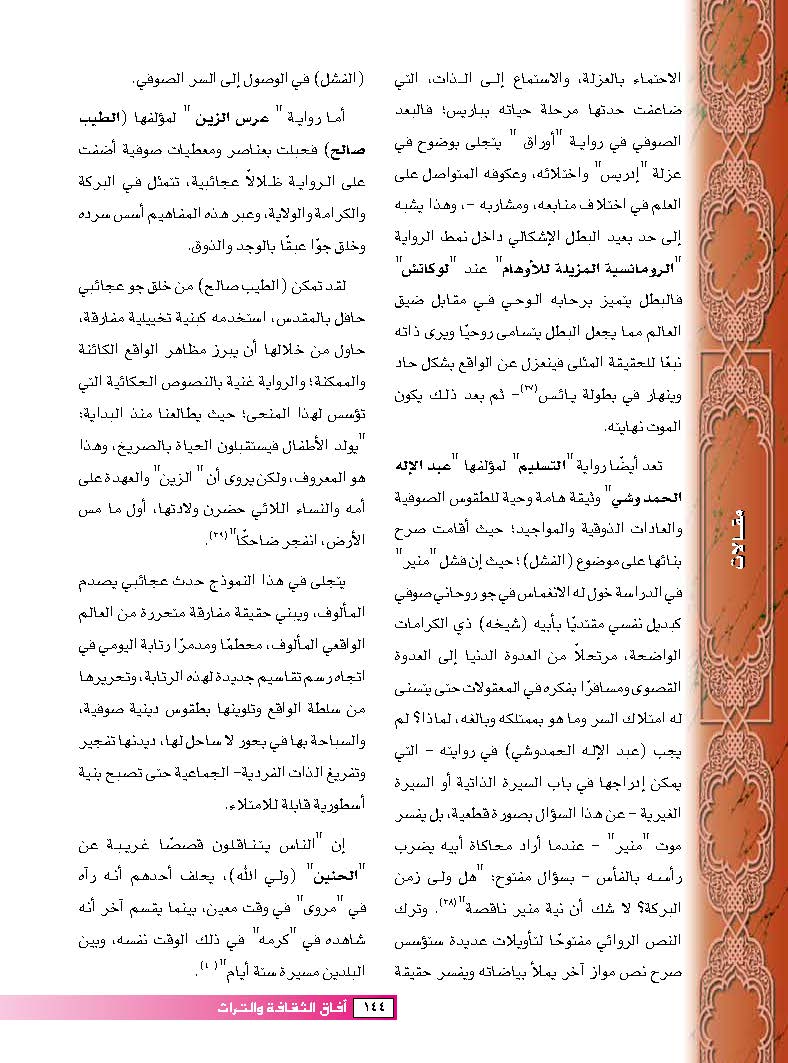 الاحتماء بالعزلة، والاستماع إلى الـذات، التي
ضاعفت حدتها مرحلة حياته بباريس؛ فالبعد
الصوفي في روايـة "أوراق" يتجلى بوضوح في
عزلة "إدريس" واختلائه، وعكوفه المتواصل على
العلم في اختلاف منابعه، ومشاربه -، وهذا يشبه
إلى حد بعيد البطل الإشكالي داخل نمط الرواية
"الرومانسية المزيلة للأوهام" عند "لوكاتش"
فالبطل يتميز برحابه الوحي في مقابل ضيق
العالم مما يجعل البطل يتسامى روحيًا ويرى ذاته
نبعًا للحقيقة المثلى فينعزل عن الواقع بشكل حاد
وينهار في بطولة يائس(٣٧)- ثم بعد ذلك يكون
الموت نهايته.
تعد أيضًا رواية "التسليم" لمؤلفها "عبد الإله
الحمدوشي" وثيقة هامة وحية للطقوس الصوفية
والعادات الذوقية والمواجيد؛ حيث أقامت صرح
بنائها على موضوع (الفشل)؛ حيث إن فشل "منير"
في الدراسة خول له الانغماس في جو روحاني صوفي
كبديل نفسي مقتديًا بأبيه (شيخه) ذي الكرامات
الواضحة، مرتحلاً من العدوة الدنيا إلى العدوة
القصوى ومسافرًا بفكره في المعقولات حتى يتسنى
له امتلاك السر وما هو بممتلكه وبالغه، لماذا؟ لم
يجب (عبد الإله الحمدوشي) في روايته - التي
يمكن إدراجها في باب السيرة الذاتية أو السيرة
الغيرية - عن هذا السؤال بصورة قطعية، بل يفسر
موت "منير" - عندما أراد محاكاة أبيه يضرب
رأسه بالفأس - بسؤال مفتوح: "هل ولى زمن
البركة؟ لا شك أن نية منير ناقصة"(٣٨). وترك
النص الروائي مفتوحًا لتأويلات عديدة ستؤسس
صرح نص مواز آخر يملأ بياضاته ويفسر حقيقة
(الفشل) في الوصول إلى السر الصوفي.
أمـا روايـة " عرس الزين " لمؤلفها (الطيب
صالح) فحبلت بعناصر ومعطيات صوفية أضفت
على الـروايـة ظـلالاً عجائبية، تتمثل في البركة
والكرامة والولاية، وعبر هذه المفاهيم أسس سرده
وخلق جوًا عبقًا بالوجد والذوق.
لقد تمكن (الطيب صالح) من خلق جو عجائبي
حافل بالمقدس، استخدمه كبنية تخييلية مفارقة،
حاول من خلالها أن يبرز مظاهر الواقع الكائنة
والممكنة؛ والرواية غنية بالنصوص الحكائية التي
تؤسس لهذا المنحى؛ حيث يطالعنا منذ البداية:
"يولد الأطفال فيستقبلون الحياة بالصريخ، وهذا
هو المعروف، ولكن يروى أن " الزين" والعهدة على
أمه والنساء اللائي حضرن ولادتها، أول ما مس
الأرض، انفجر ضاحكًا"(٣٩).
يتجلى في هذا النموذج حدث عجائبي يصدم
المألوف، ويبني حقيقة مفارقة متحررة من العالم
الواقعي المألوف، محطمًا ومدمرًا رتابة اليومي في
اتجاه رسم تقاسيم جديدة لهذه الرتابة، وتحريرها
من سلطة الواقع وتلوينها بطقوس دينية صوفية،
والسباحة بها في بحور لا ساحل لها، ديدنها تفجير
وتفريغ الذات الفردية- الجماعية حتى تصبح بنية
أسطورية قابلة للامتلاء.
إن "الناس يتناقلون قصصًا غريبة عن
"الحنين" (ولـي الله)، يحلف أحدهم أنه رآه
في "مروى" في وقت معين، بينما يقسم آخر أنه
شاهده في "كرمه" في ذلك الوقت نفسه، وبين
البلدين مسيرة ستة أيام"(٤٠).
مقـالات
١٤٤ آفاق الثقافة والتراث